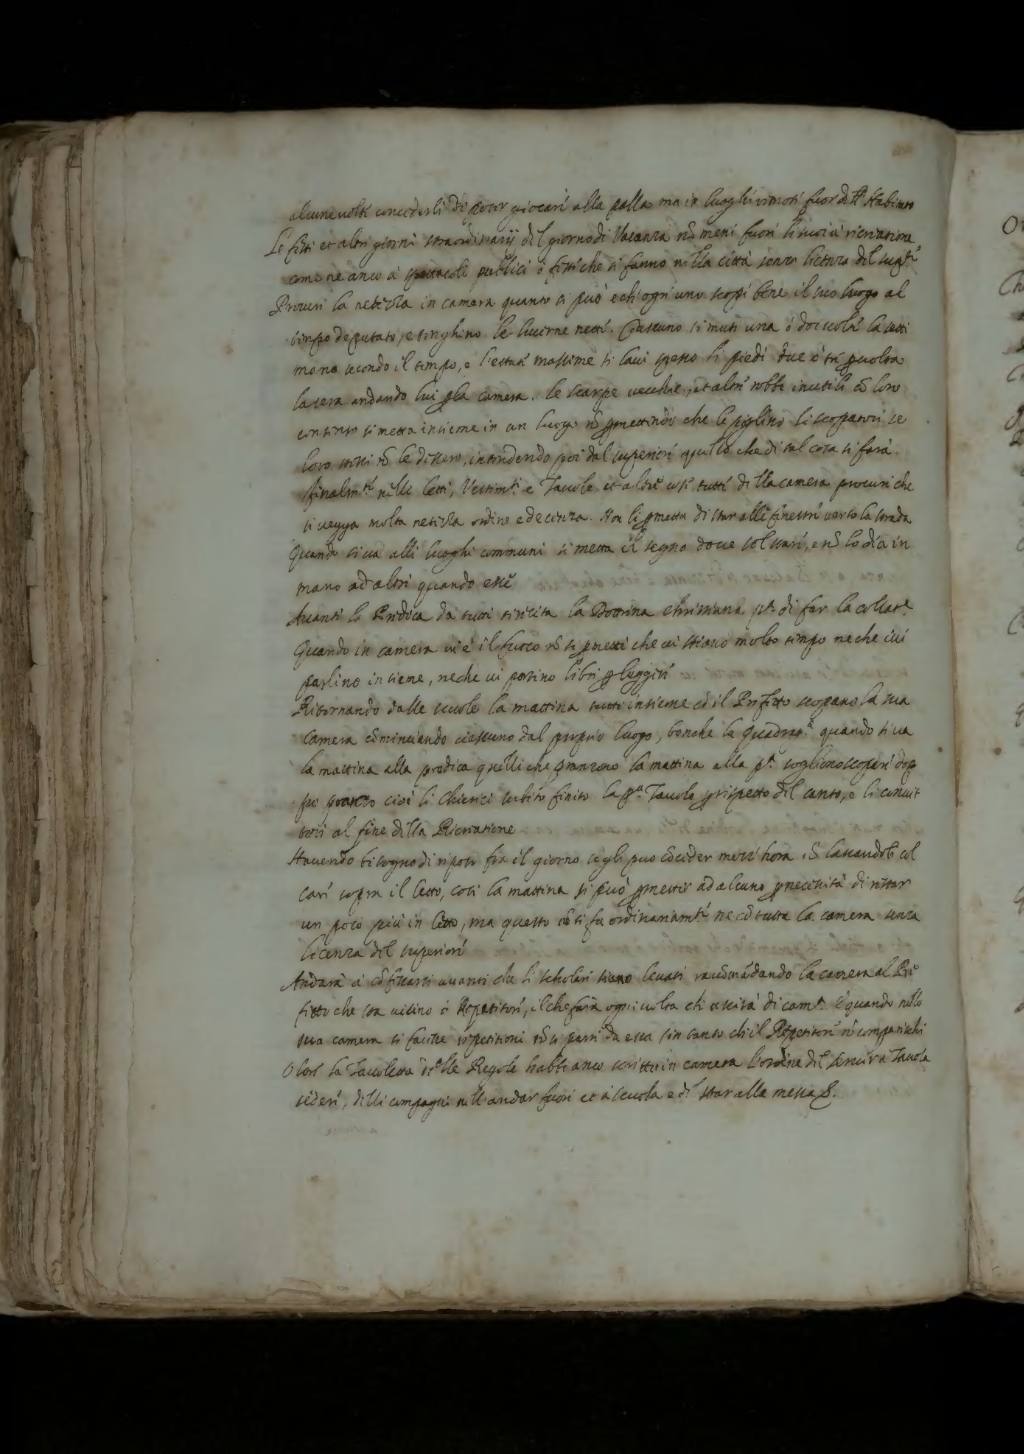 alcune volte concederli di poter giocare alla palla ma in luoghi remoti fuor di
Le feste et altri giorni straordinarij del giorno di Vacanza nõ meni fuori li suoi à ricreatione
come ne anco à spettacoli publici ò feste che si fanno nella città senza licenza del supʳᵉ
Procuri la netezza in camera quanto si può e ch'ogni uno scopi bene il suo luogo al
tempo deputato, e tenghino le lucerne nette. Ciascuno si muti una ò doi volte la setti
mana secondo il tempo, e l'estate massime si lavi spesso li piedi due ò tre p volta
la sera andando lui p la camera. le scarpe vecchie, et altre robbe inutili cõ loro
consenso si metta insieme in un luogo nõ pmettendo che le piglino li scopatori se
loro stessi nõ le dettero, intendendo poi dal superiore quello che di tal cosa si farà.
finalmᵗᵉ nelle letti, Vestimᵗⁱ e Tavole et altre cose tutte della camera procuri che
si vegga molta netezza ordine e decenza. Non li pmetta di star alle finestre verso la strada
Quando si va alli luoghi communi si metta il segno dove sol stare, e nõ lo dia in
mano ad altri quando esce
Avanti la Predica da tutti si recita la Dottrina christiana pᵃ di far la collatᵉ
Quando in camera vi è il fuoco nõ si pmetti che vi stiano molto tempo ne che ivi
parlino insieme, ne che vi portino libri p leggere
Ritornando dalle scuole la mattina tutti insieme cõ il Prefetto scopano la sua
camera cõminciando ciascuno dal proprio luogo, benche la Quadragᵃ quando si va
la mattina alla predica quelli che pranzono la mattina alla pᵃ sogliono scopare dop
po pranzo cioè li Chierici subito finito la pᵃ Tavola p rispetto del canto, e li convit
tori al fine della Ricreatione
Havendo bisogno di riposo fra il giorno se gli può cõceder mezz'hora nõ lassandoli col
care sopra il letto, così la mattina si può pmetter ad alcuno p necessità di restar
un poco più in letto, ma questo nõ si fa ordinariamᵗᵉ ne cõ tutta la camera senza
licenza del superiore
Andarà à cõfessarsi avanti che li scholari siano levati racõmãdando la camera al Pre
fetto che sta vicino ò Repetitore, il che farà ogni volta che uscirà di camᵃ. E quando nella
sua camera si faranno repetitioni nõ si parti da essa sin tanto che il Repetitore nõ comparischi
Oltre la Tavoletta delle Regole habbi anco scritto in camera l'ordine del servir à Tavola
sedere, delli compagni nell'andar fuori et à scuola e di star alla messa &.